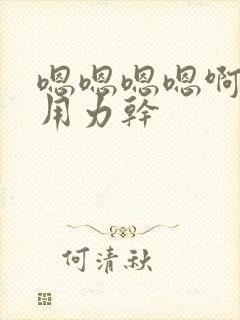 嗯嗯嗯嗯啊
用力幹
何清秋